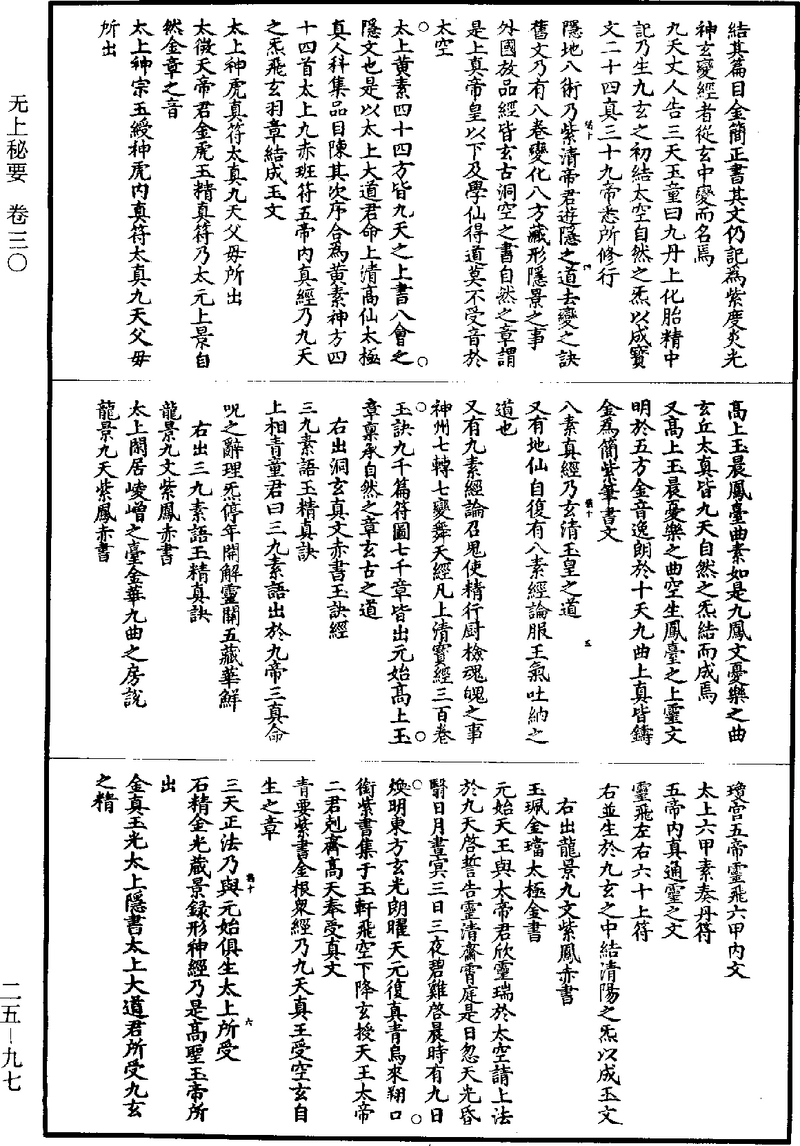 无上秘要 卷三〇
二五—九七
結其篇目金簡正書其文仍記為紫度炎光
神玄變經者從玄中變而名焉
九天丈人告三天玉童曰九丹上化胎精中
記乃生九玄之初結太空自然之炁以成寶
文二十四真三十九帝悉所修行
隱地八術乃紫清帝君遊隱之道去變之訣
舊文乃有八卷變化八方藏形隱景之事
外國放品經皆玄古洞空之書自然之章謂
是上真帝皇以下及學仙得道莫不受音於
太空
太上黃素四十四方皆九天之上書八會之
隱文也是以太上大道君命上清高仙太極
真人科集品目陳其次序合為黃素神方四
十四首太上九赤班符五帝內真經乃九天
之炁飛玄羽章結成玉文
太上神虎真符太真九天父母所出
太微天帝君金虎玉精真符乃太元上景自
然金章之音
太上神宗玉綬神虎內真符太真九天父母
所出
高上玉晨鳳臺曲素如是九鳳文憂樂之曲
玄丘太真皆九天自然之炁結而成焉
又高上玉晨憂樂之曲空生鳳臺之上靈文
明於五方金音逸朗於十天九曲上真皆鑄
金為簡紫筆書文
八素真經乃玄清玉皇之道
又有地仙自復有八素經論服王氣吐納之
道也
又有九素經論召鬼使精行厨檢魂魄之事
神州七轉七變舞天經凡上清寶經三百卷
玉訣九千篇符圖七千章皆出元始高上玉
章稟承自然之章玄古之道
右出洞玄真文赤書玉訣經
三九素語玉精真訣
上相青童君曰三九素語出於九帝三真命
呪之辭理炁停年開解靈關五藏華鮮
右出三九素語玉精真訣
龍景九文紫鳳赤書
太上閑居崚嶒之臺金華九曲之房說
龍景九天紫鳳赤書
瓊宮五帝靈飛六甲內文
太上六甲素奏丹符
五帝內真通靈之文
靈飛左右六十上符
右並生於九玄之中結清陽之炁以成玉文
右出龍景九文紫鳳赤書
玉珮金璫太極金書
元始天王與大帝君欣靈瑞於太空請上法
於九天啓誓告靈清齋霄庭是日忽天光昏
翳日月晝冥三日三夜碧雞啓晨時有九日
煥明東方玄光朗曜天元復真青烏來翔口
銜紫書集于玉軒飛空下降玄授天王太帝
二君剋齋高天奉受真文
青要紫書金根衆經乃九天真王受空玄自
生之章
三天正法乃與元始俱生太上所受
石精金光藏景錄形神經乃是高聖玉帝所
出
金真玉光太上隱書太上大道君所受九玄
之精